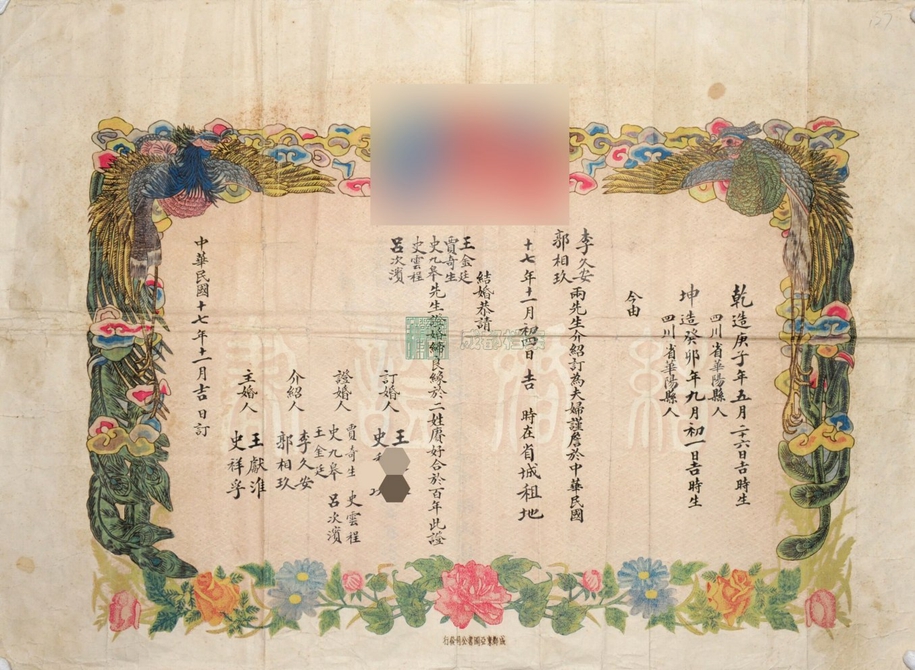 乾造庚子年五月二十六日吉時生
四川省華陽縣人
坤造癸卯年九月初一日吉時生
四川省華陽縣人
今由
李久安
郭相玖
兩先生介紹訂為夫婦謹詹於中華民國
十七年十一月初四日吉 時在省城租地
結婚恭請
王金廷
賈奇生
史九皋
史雲程
呂次濱
先生證婚締良緣於二姓賡好合於百年此證
訂婚人
王
史
證婚人
賈奇生
史九皋
王金廷
史雲程
呂次濱
介紹人
李久安
郭相玖
主婚人
王獻淮
史祥孚
中華民國十七年十一月吉日訂
127